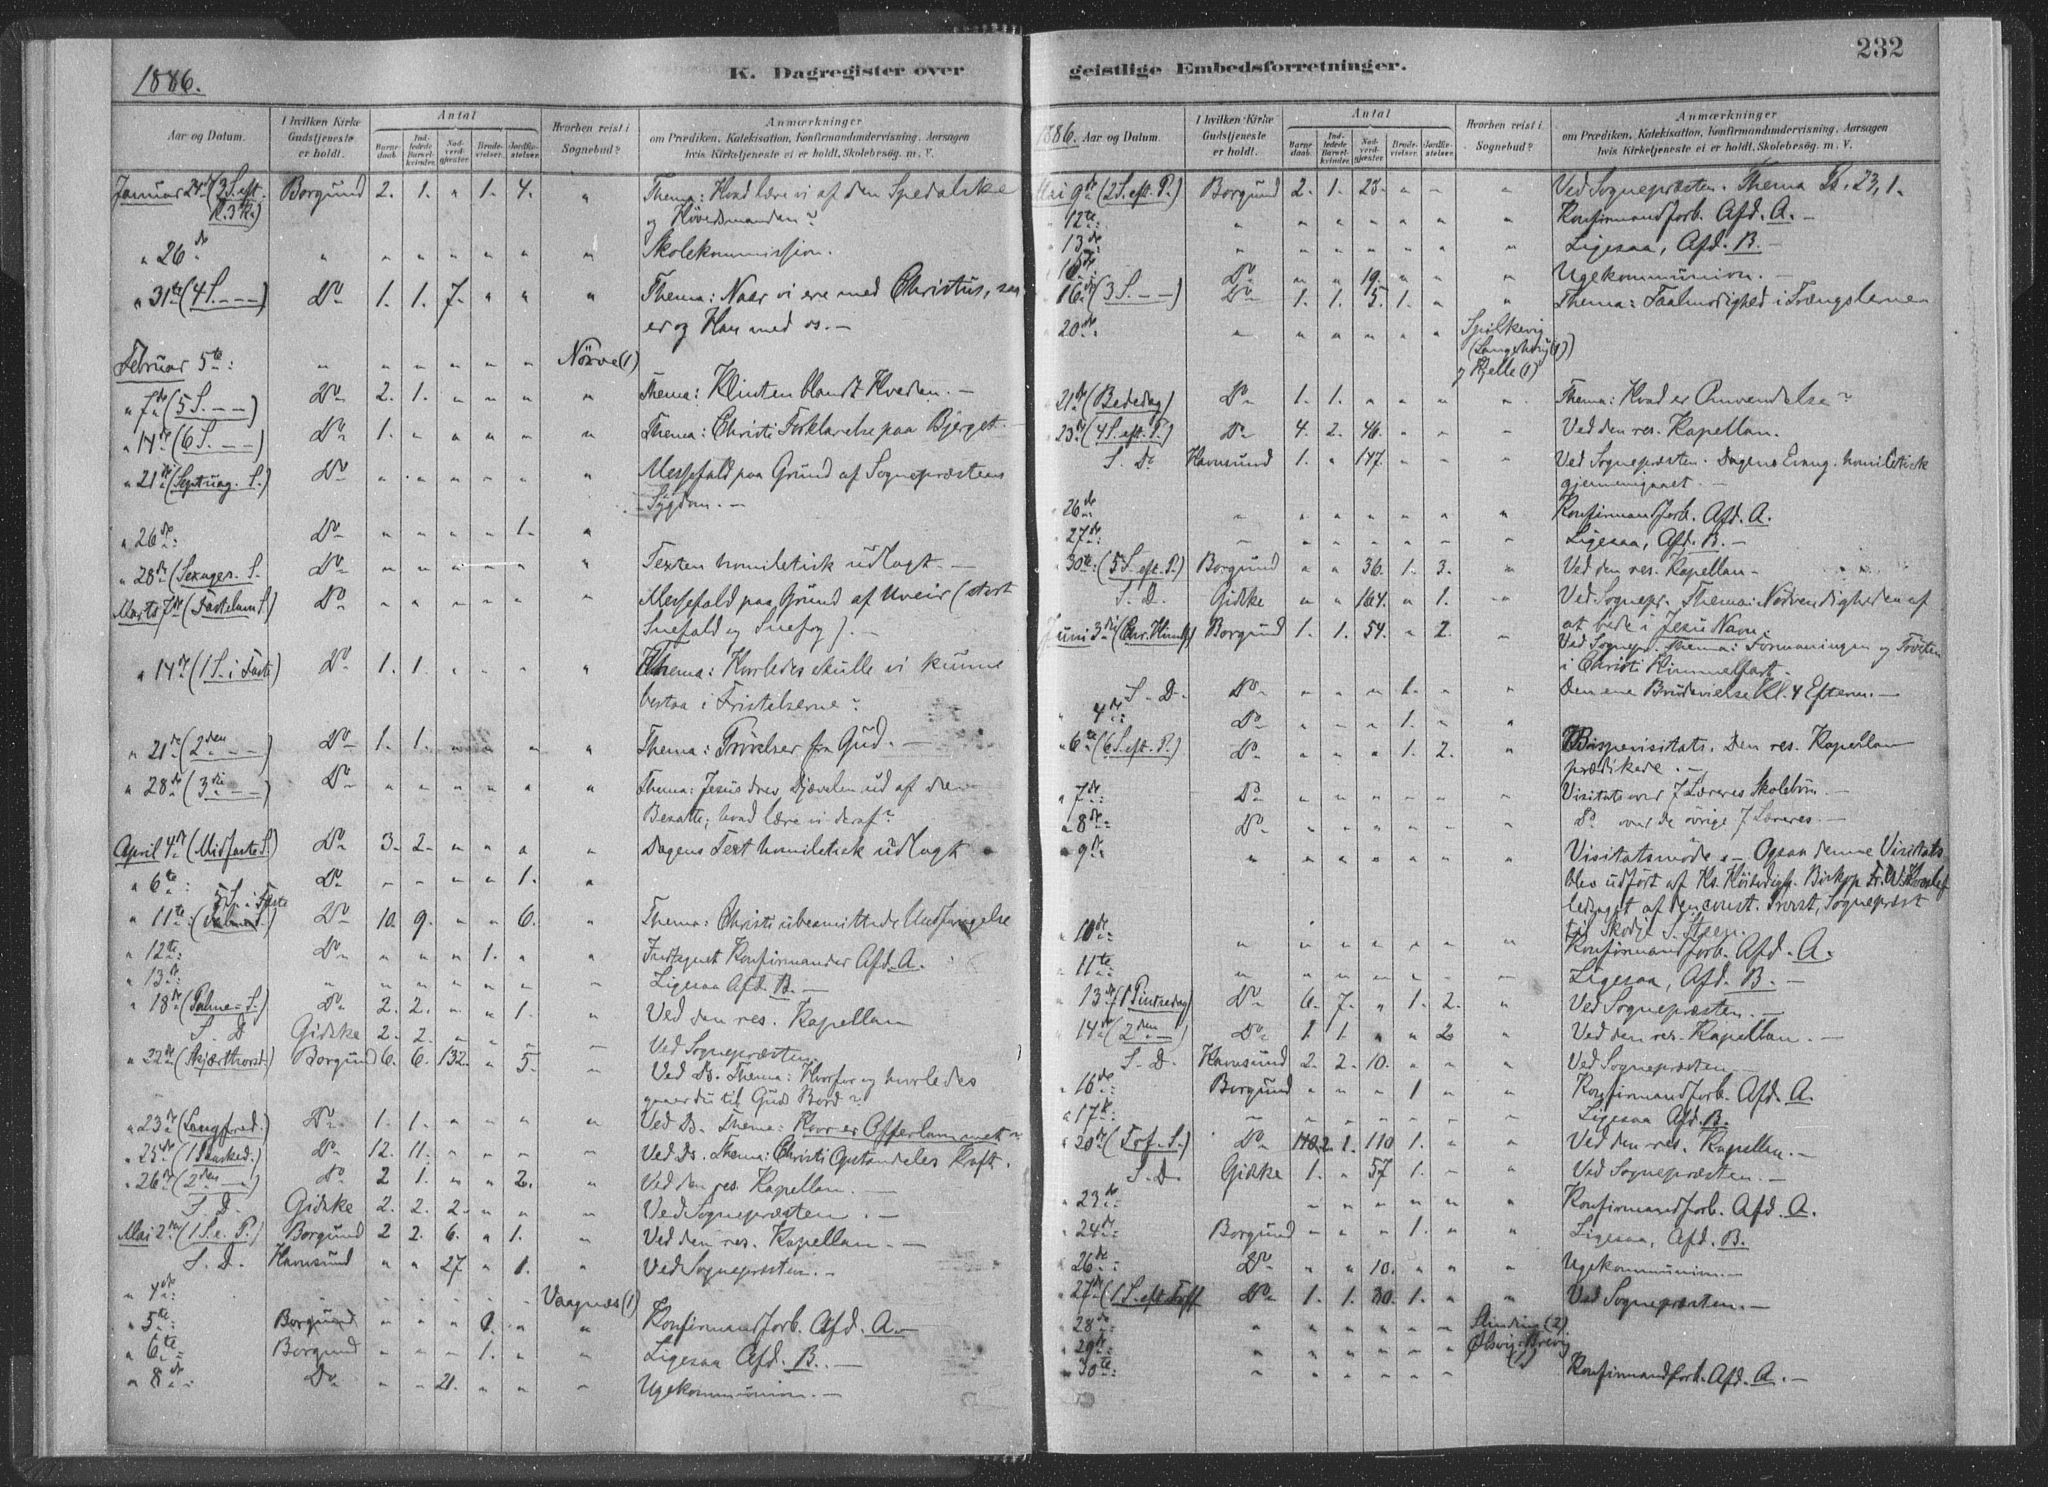 232
1886.
K. Dagregister over geistlige Embedsforretninger.
Aar og Datum. I hvilken Kirke Gudstjeneste er holdt. Antal Barnedaab. Indledede Barselkvinder. Nadverdgjæster. Brudevielser. Jordfæstelser. Hvorhen reist i Sognebud? Anmærkninger om Prædiken, Katekisation, Konfirmandundervisning, Aarsagen hvis Kirketjeneste ei er holdt, Skolebesøg m. V.
Januar 24de (3 S. eft. H. 3 K.) Borgund 2. 1. " 1. 4. " Thema: Hvad lære vi af den Spedalske
og Høvedsmanden?
" 26de " " " " " " " Skolekommission.
" 31te (4 S. – –) Do 1. 1. 7. " " " Thema: Naar vi ere med Christus, saa
er og Han med os. –
Februar 5te: " " " " " " Nörve (1)
" 7de (5 S. – –) Do 2. 1. " " " " Thema: Klinten blandt Hveden. –
" 14de (6 S. – –) Do 1. " " " " " Thema: Christi Forklarelse paa Bjerget. –
" 21de (Septuag. S.) Do " " " " " " Messefald paa Grund af Sognepræstens
Sygdom. –
" 26de: Do " " " " 1. "
" 28de (Sexages. S. Do " " " " " " Texten homiletisk udlagt. –
Marts 7de (Fastelavn S.) Do " " " " " " Messefald paa Grund af Uveir (stort
Snefald og Snefog). –
" 14de (1 S. i Faste) Do 1. 1. " " " " Thema: Hvorledes skulle vi kunne
bestaa i Fristelserne?
" 21de (2den – –) Do 1. 1. " " " " Thema: Prövelser fra Gud. –
" 28de (3die – –) Do " " " " " " Thema: Jesus drev Djævelen ud af den
Besatte; hvad lære vi deraf?
April 4de (Midfaste S.) Do 3. 2. " " " " Dagens Text homiletisk udlagt
" 6te: Do " " " " 1. "
" 11te: 5 S. i Faste Do 10. 9. " " 6. " Thema: Christi ubesmittede Undfangelse
" 12te: Do " " " 1. " " Indtegnet Konfirmander Afd. A.
" 13de: " " " " " " – Ligesaa Afd. B. –
" 18de (Palme-S.) Do 2. 2. " " 1. " Ved den res. Kapellan
S. D. Gidske 2. 2. " " " – Ved Sognepræsten.
" 22de (Skjærthorsd.) Borgund 6. 6. 132. " 5. – Ved Ds. Thema: Hvorfor og hvorledes
gaaer du til Guds Bord?
" 23de (Langfred.) Do 1. 1. " " " " Ved Ds. Thema: Hvor er Offerlammet?
" 25de (1 Paasked.) Do 12. 11. " " " " Ved Ds. Thema: Christi Opstandelses Kraft.
" 26de (2den –) Do 2 1. " " 2. " Ved den res. Kapellan. –
S. D. Gidske 2. 2. 2. " " " Ved Sognepræsten. –
Mai 2den (1 S. e. P.) Borgund 2 2. 6. " 1. " Ved den res. Kapellan. –
S. D. Havnsund " " 27. " 1. " Ved Sognepræsten. –
" 4de: " " " " " " Vaagnæs (1)
" 5te: Borgund " " " 1. " " Konfirmandforb. Afd. A. –
" 6te: Borgund " " " 1. " " Ligesaa Afd. B. –
" 8de Do " " 21. " " " Ugekommunion. –
1886. Aar og Datum. I hvilken Kirke Gudstjeneste er holdt. Antal Barnedaab. Indledede Barselkvinder. Nadverdgjæster. Brudevielser. Jordfæstelser. Hvorhen reist i Sognebud? Anmærkninger om Prædiken, Katekisation, Konfirmandundervisning, Aarsagen hvis Kirketjeneste ei er holdt, Skolebesøg m. V.
Mai 9de (2 S. eft. P.) Borgund 2. 1. 27. " – " Ved Sognepræsten. Thema Ps. 23, 1.
" 12te: " " " " " " " Konfirmandforb. Afd. A. –
" 13de: " " " " " " " Ligesaa, Afd. B. –
" 15de: Do " " 19. " " " Ugekommunion. –
" 16de (3 S. – –) Do 1. 1. 5. 1. " " Thema: Taalmodighed i Trængslerne
" 20de: " " " " " " Spilkevig
(Langehoug (1))
og Kjelle (1)
" 21de (Bededag) Do 1. 1. " " " " Thema: Hvad er Omvendelse?
" 23de (4 S. eft. P.) Do 4. 2. 46. " – " Ved den res. Kapellan.
S. D. Havnsund 1. " 147. " – " Ved Sognepræsten. Dagens Evang. homiletisk
gjennemgaaet. –
" 26de " " " " " " " Konfirmandforb. Afd. A.
" 27de: " " " " " " " Ligesaa, Afd. B. –
" 30te: (5 S. eft. P.) Borgund " " 36. 1. 3. " Ved den res. Kapellan –
S. D. Gidske " " 164. " 1. " Ved Sognepr. Thema: Nødvendigheden af
at bede i Jesu Navn.
Juni 3die (Chr. Himlf.) Borgund 1. 1. 54. " 2. – Ved Sognepr. Thema: Formaningen og Trösten
i Christi Himmelfart. –
S. D. Do " " " 1. " " Den ene Brudevielse Kl. 4 Efterm. –
" 4de: Do " " " 1. " "
" 6te (6 S. eft. P.) Do " " " 1. 2. " Bispevisitats. Den res. Kapellan
prædikede. –
" 7de: Do " " " " " " Visitats over 7 Læreres Skolebörn. –
" 8de: Do " " " " " " Do over de övrige 7 Læreres. –
" 9de: " " " " " " " Visitatsmöde. – Ogsaa denne Visitats
blev udført af Hs. Høiærdigh. Biskop Fr. W. Hvoslef
ledsaget af den const. Provst, Sognepræst
til Skodje S. Steen.
" 10de: " " " " " " " Konfirmandforb. Afd. A.
" 11te: " " " " " " – Ligesaa, Afd. B. –
" 13de (1 Pintsedag) Do 6. 7. " 1. 2. " Ved Sognepræsten. –
" 14de (2den –) Do 1. 1. " " 2. " Ved den res. Kapellan. –
S. D. Havnsund 2. 2. 10. " " – Ved Sognepræsten –
" 16de Borgund " " " 1 " " Konfirmandforb. Afd. A.
" 17de: – " " " " " – Ligesaa Afd. B.
" 20de (Tref. S.) Do 2 1. 110 1. " " Ved den res. Kapellan. –
S. D. Gidske 1. " 57 1. – " Ved Sognepræsten. –
" 23de: " " " " " " Konfirmandforb. Afd. A.
" 24de: Borgund " " " 1. " " Ligesaa, Afd. B.
" 26de: Do " " 10. " " " Ugekommunion. –
" 27de (1 S. eft. Tref. Do 1. 1. 30. 1. " " Ved Sognepræsten. –
" 28de: " " " " " – Slinding (2)
" 29de: " " " " " " Ølsvig-Brevig
(1)
" 30te: " " " " " " Konfirmandforb. Afd. A. –